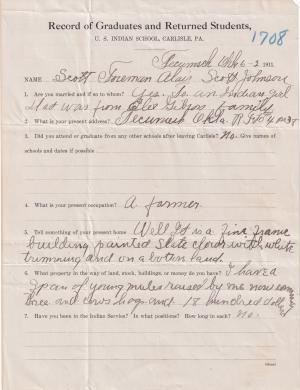 Record of Graduates and Returned Students,
U. S. INDIAN SCHOOL, CARLISLE, PA.
1708
Tecumseh Okla 6-2 1911
NAME Scott Foreman Alias Scott Johnson
1. Are you married and if so to whom? Yes. To an Indian girl
that was from
family
2. What is your present address? Tecumseh Okla. R F D 4
3. Did you attend or graduate from any other schools after leaving Carlisle? No. Give names of
schools and dates if possible.
4. What is your present occupation? A farmer
5. Tell something of your present home Well It is a fine frame
building painted slate color with white
trimming and on
land.
6. What property in the way of land, stock, buildings, or money do you have? I have a
span of young mules raised by me
three and cows hogs and 18 hundred dollars
7. Have you been in the Indian Service? In what positions? How long in each? No.